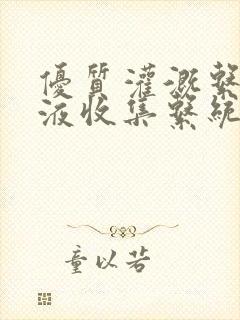 優質灌溉繫
液收集繫統
童以若